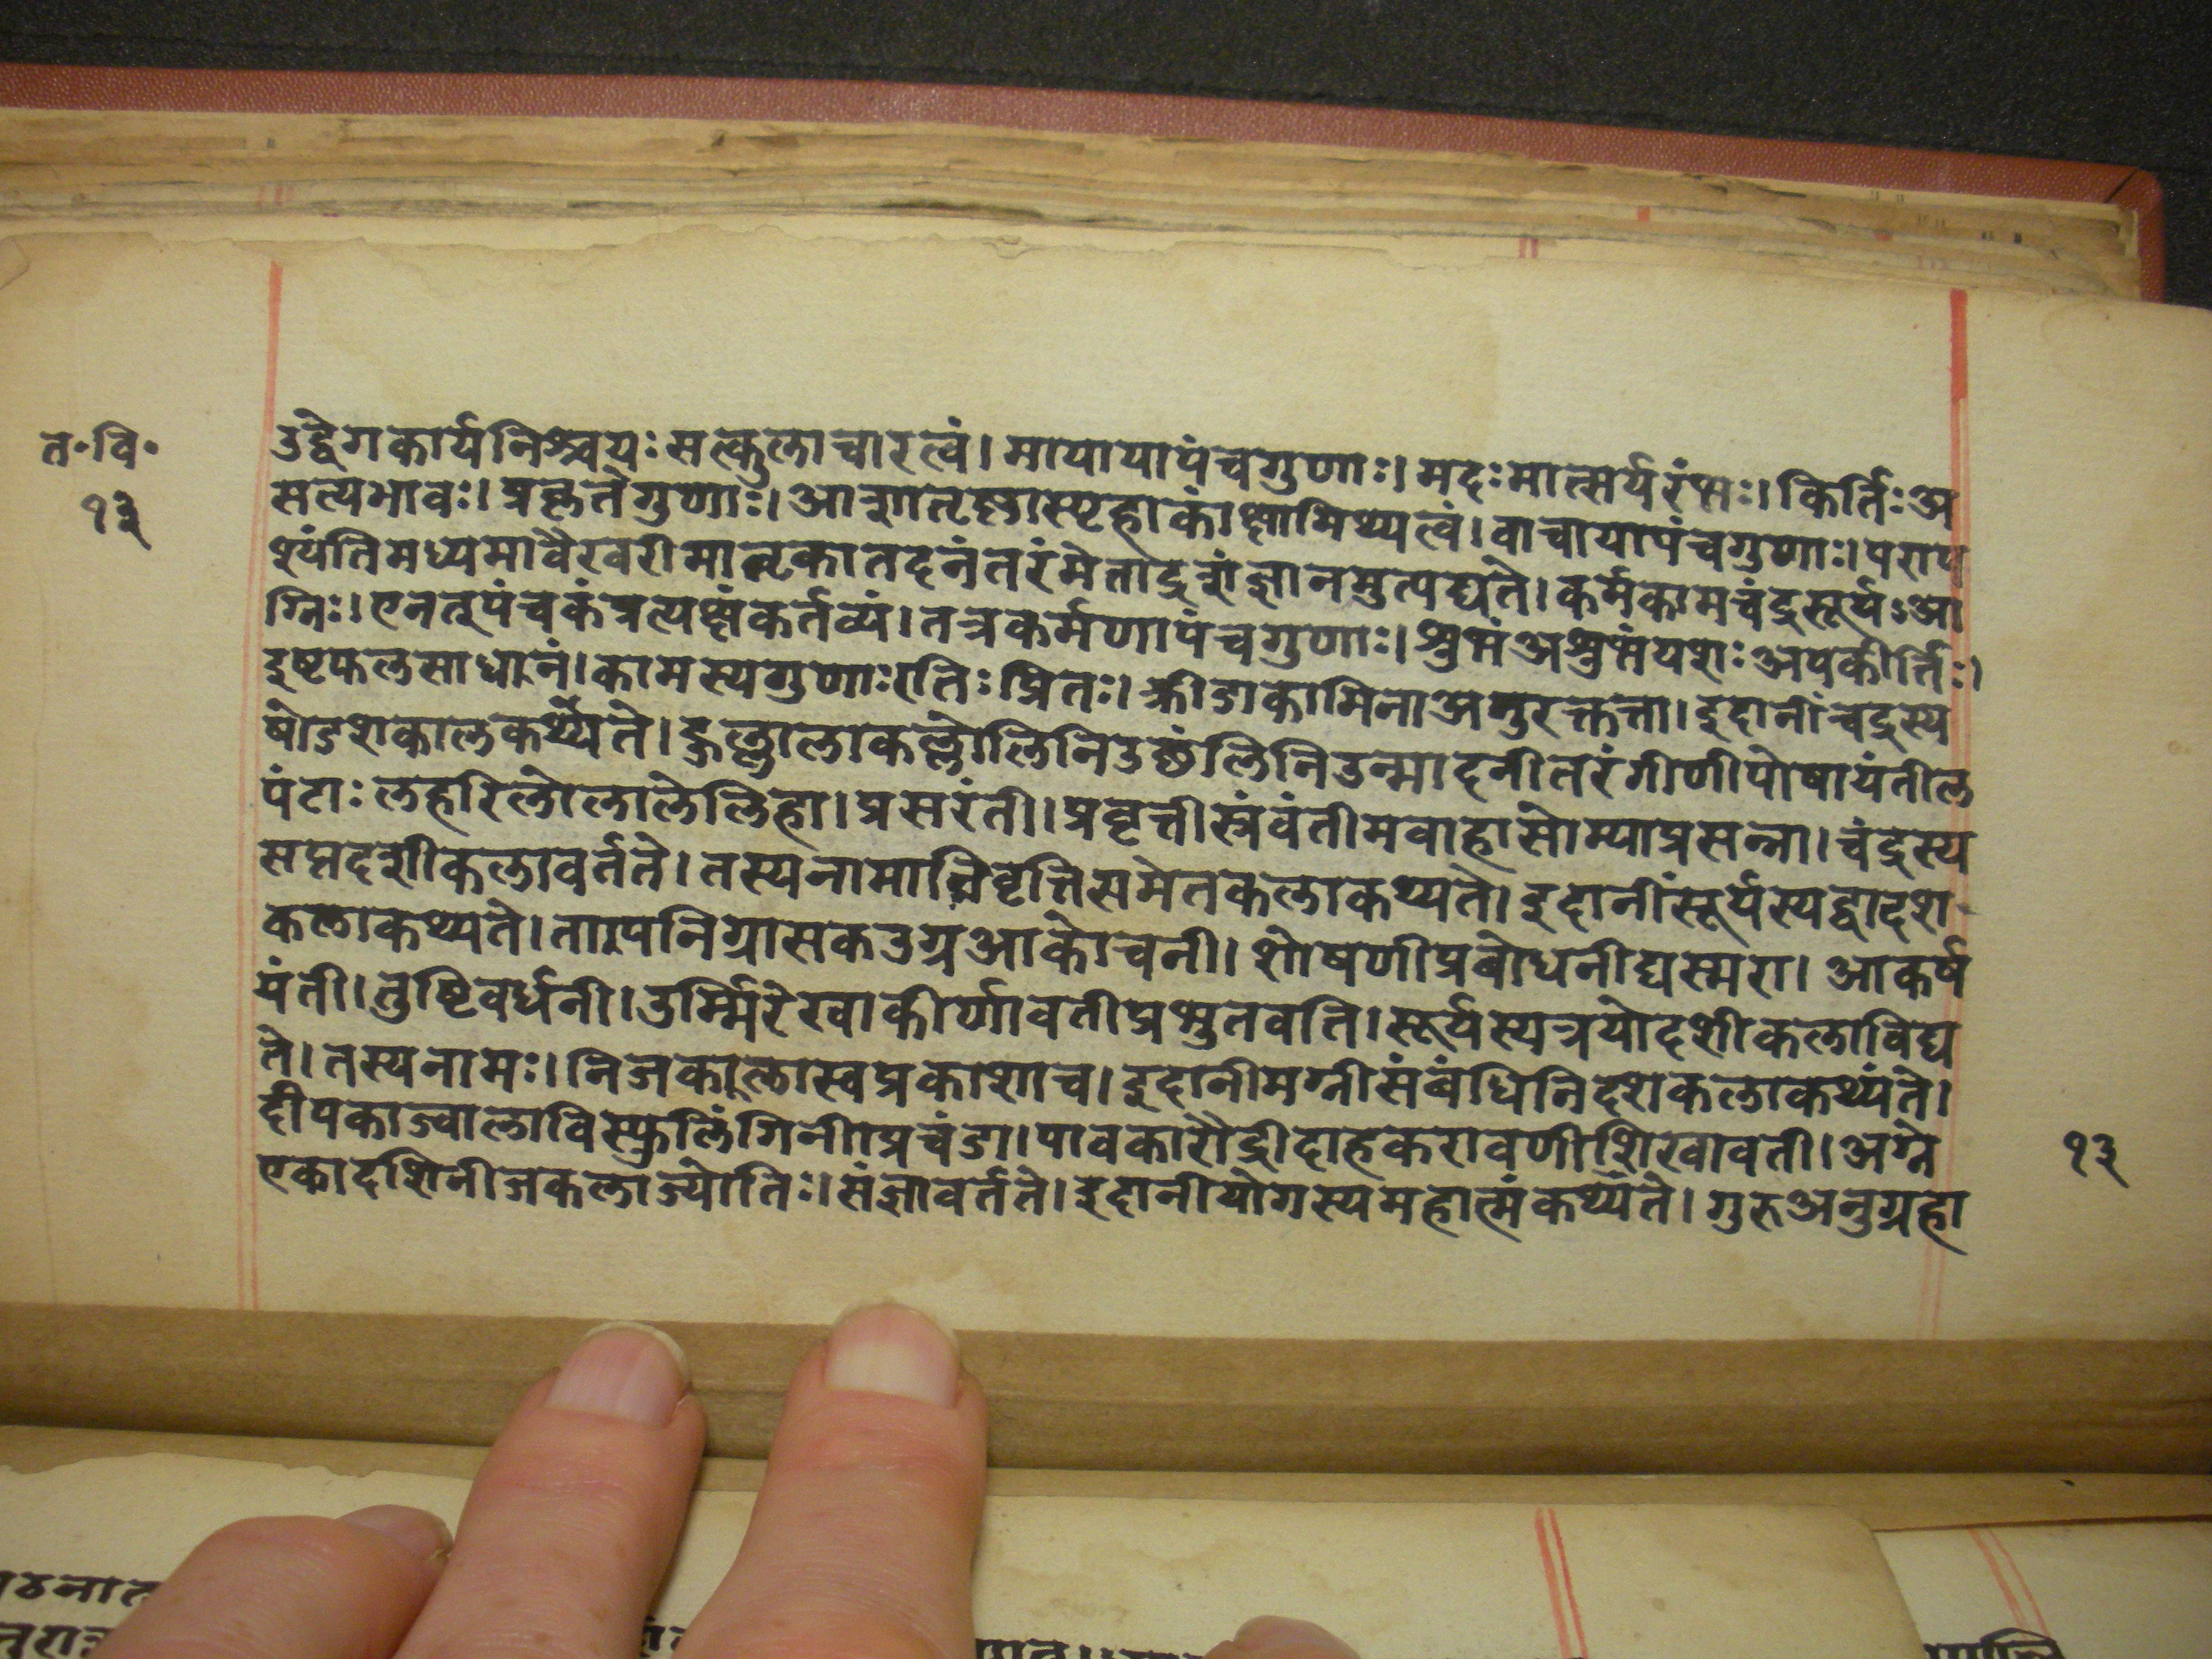 त॰वि॰
१३
उद्वेगकार्यनिश्चयः सत्कुलाचारत्वं। मायायापंचगुणाः। मदःमात्सर्यरंभः। किर्तिःअ
सत्यभावः। प्रकृतेगुणाः। आशातृष्णास्पृहाकांक्षामिथ्यत्वं। वाचायापंचगुणाः। पराप
श्यंतिमध्यमावैरवरीमातृकातदनंतरंमेतादृशंज्ञानमुत्पद्यते। कर्मकामचंद्रसूर्यऽआ
ग्निः। एनत्पंचकंप्रत्यक्षंकर्तव्यं। तत्रकर्मणापंचगुणाः। शुभंअशुभंयशःअपकीर्तिः।
दृष्टफलसाधानं। कामस्यगुणाःरतिः प्रितः। क्रीडाकामिनाअनुरक्तत्ता। इदानींचद्रस्य
षोडशकालकर्थ्यते। कल्लोलिनिउछंलिनिउन्मादनीतरंगीणीपोषायंतील
पंटाः लहरिलोलालेलिहा। प्रसरंती। प्रवृत्तीस्रंवंतीमवाहासोम्याप्रसन्ना। चंद्रस्य
सप्तदशीकलावर्तते। तस्यनामानिवृत्तिसमेतकलाकथ्यते। इदानींसूर्यस्यद्वादश
कलाकथ्यते। तापनिग्रासकउग्रआकोचनी। शोषणीप्रबोधनीद्यस्मरा। आकर्ष
यंती। तुष्टिवर्धनी। उर्म्मिरेरवाकीर्णावतीप्रभुतवति। सूर्यस्यत्रयोदशीकलाविद्य
ते। तस्यनामः। निजकालास्वप्रकाशाच। इदानीमग्नीसंबंधिनिदशकलाकथ्यंते।
दीपकाज्वालाविस्फुलिंगिनीप्रचंडा। पावकारौद्रीदाहकरावणीशिरवावती। अग्ने
एकादशिनीजकलाज्योतिः। संज्ञावर्तते। इदानीयोगस्यमहात्मंकथ्यते। गुरुअनुग्रहा
१३